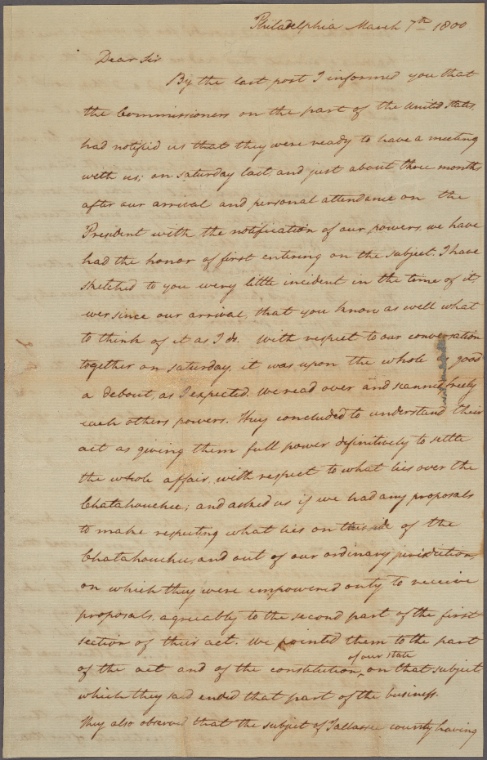 Philadelphia March 7th 1800
Dear Sir
By the last post I informed you that
the Commissioners on the part of the United States
had notified us that they were ready to have a meeting
with us; on saturday last, and just about three months
after our arrival and personal attendance on the
President with the notification of our powers, we have
had the honor of first entering on the subject. I have
sketched to you every little incident in the time of it,
ever since our arrival, that you know as well what
to think of it as I do. With respect to our conversation
together on saturday, it was upon the whole as good
a debout, as I expected. We read over and scanned freely
each others powers. They concluded to understand their
act as giving them full power definitively to settle
the whole affair, with respect to what lies over the
Chatahouchee; and asked us if we had any proposals
to make respecting what lies on this side of the
Chatahouchee, and out of our ordinary jurisdiction,
on which they were empowered only to receive
proposals, agreeably to the second part of the first
section of their act. We pointed them to the part
of the act and of the constitution of our state, on that subject
which they said ended that part of the business.
They also observed that the subject of Tallassee county having